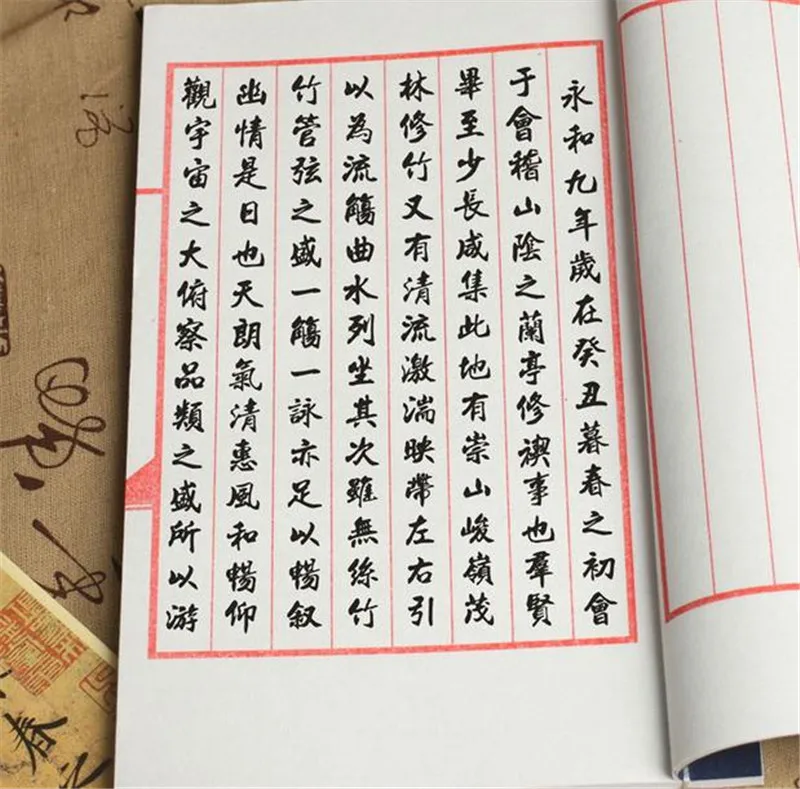 永和九年歲在癸丑暮春之初會
于會稽山陰之蘭亭修禊事也羣賢
畢至少長咸集此地有崇山峻嶺茂
林修竹又有清流激湍映帶左右引
以為流觴曲水列坐其次雖無絲竹
竹管弦之盛一觴一詠亦足以暢叙
幽情是日也天朗氣清惠風和暢仰
觀宇宙之大俯察品類之盛所以游
春